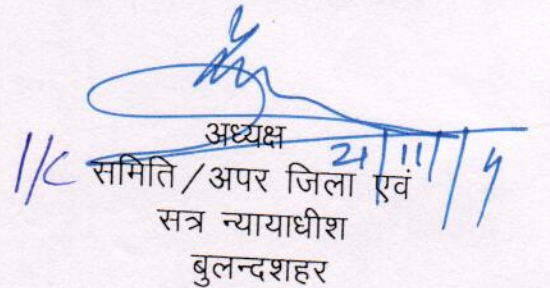 अध्यक्ष
I/C समिति/अपर जिला एवं
सत्र न्यायाधीश
बुलन्दशहर